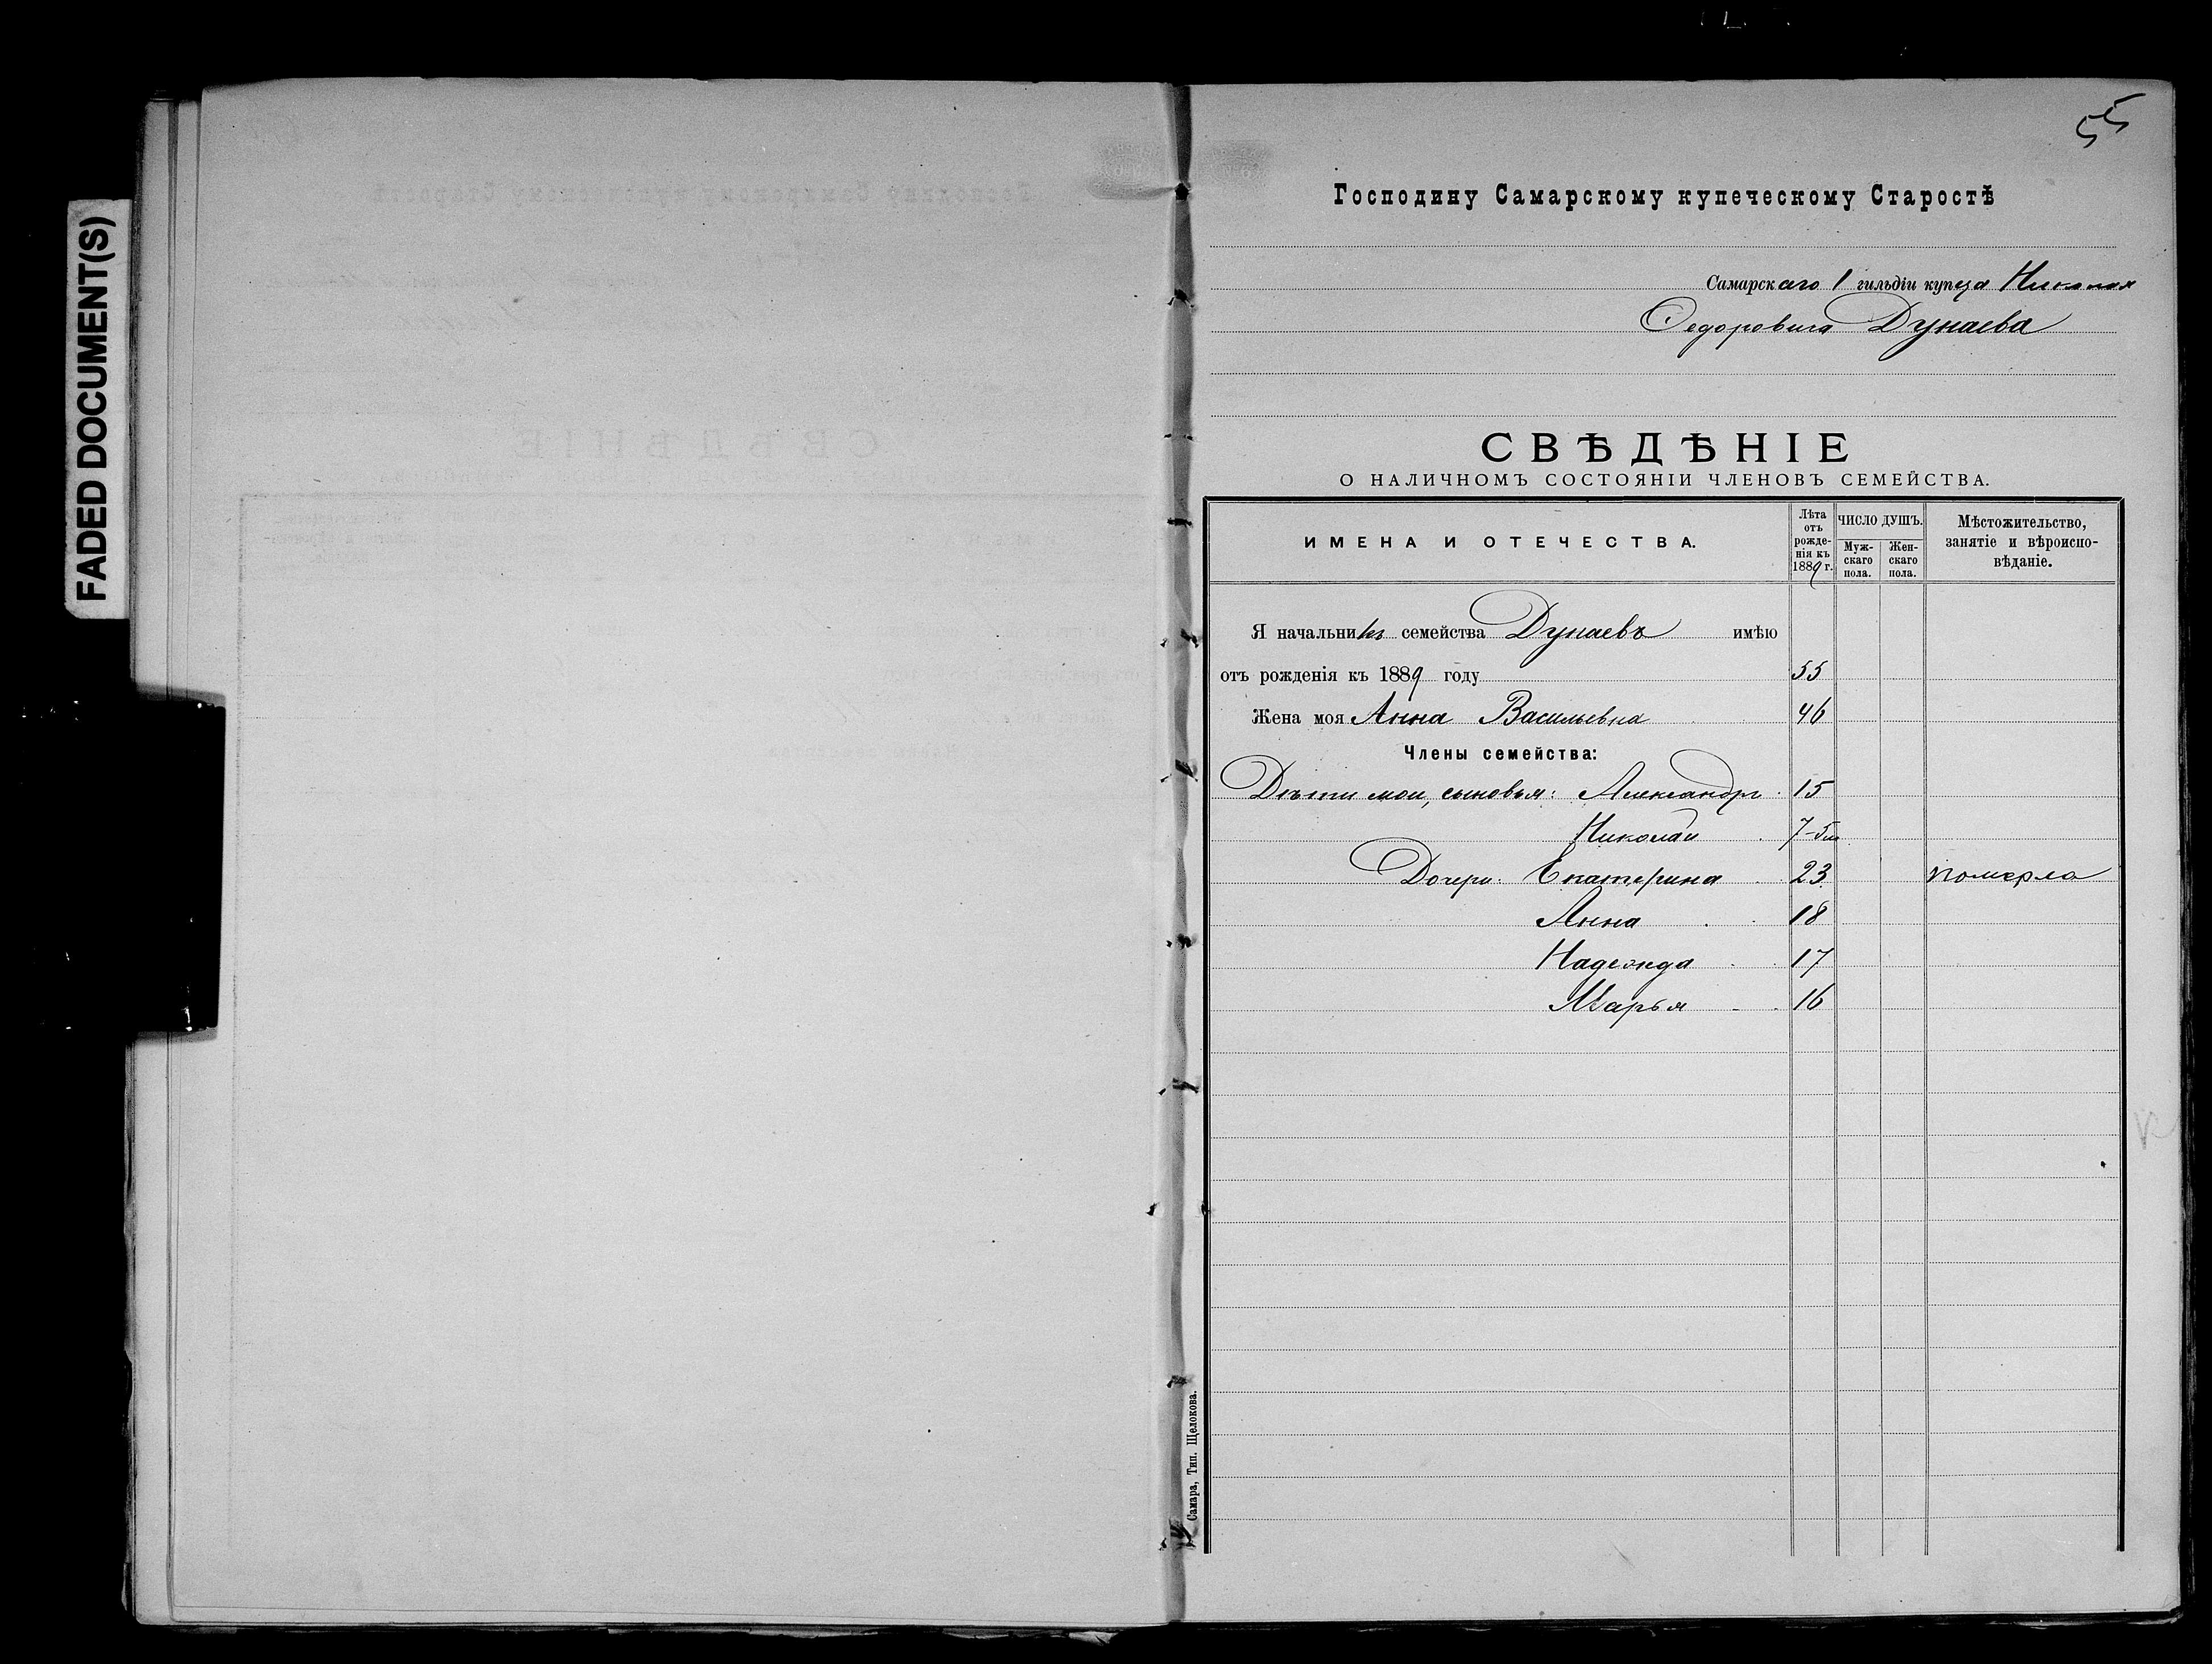 FADED DOCUMENT(S)
55
Господину Самарскому купеческому Старостѣ
Самарскаго 1 гильдіи купца Николая
Ѳедоровича Дунаева
СВѢДѢНІЕ
О НАЛИЧНОМЪ СОСТОЯНІИ ЧЛЕНОВЪ СЕМЕЙСТВА.
ИМЕНА И ОТЕЧЕСТВА.
Лѣта отъ рожде-нія къ 1889 г.
ЧИСЛО ДУШЪ.
Муж-скаго пола.
Жен-скаго пола.
Мѣстожительство, занятіе и вѣроиспо-вѣданіе.
Я начальникъ семейства Дунаевъ имѣю
отъ рожденія къ 1889 году 55
Жена моя Анна Васильевна 46
Члены семейства:
Дѣти мои, сыновья: Александръ 15
Николай 7-5м
Дочери: Екатерина 23 померла
Анна 18
Надежда 17
Марья 16
Самара, Тип. Щелокова.